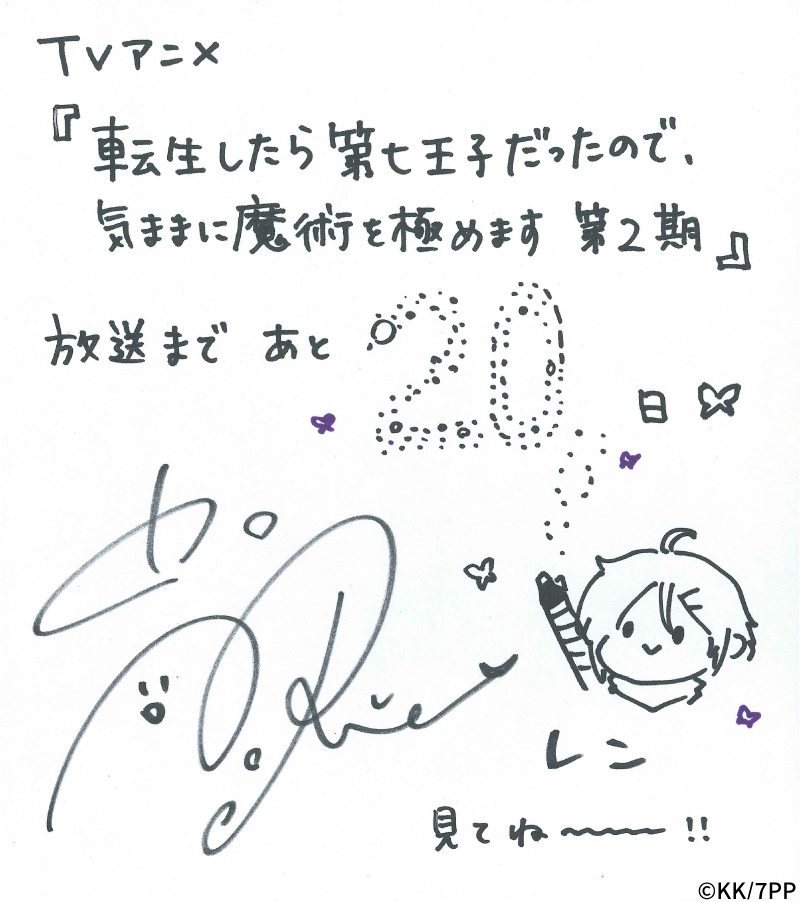 TVアニメ
『転生したら第七王子だったので、
気ままに魔術を極めます 第2期』
放送まで あと 20日
レン
見てね〜〜!!
©KK/7PP